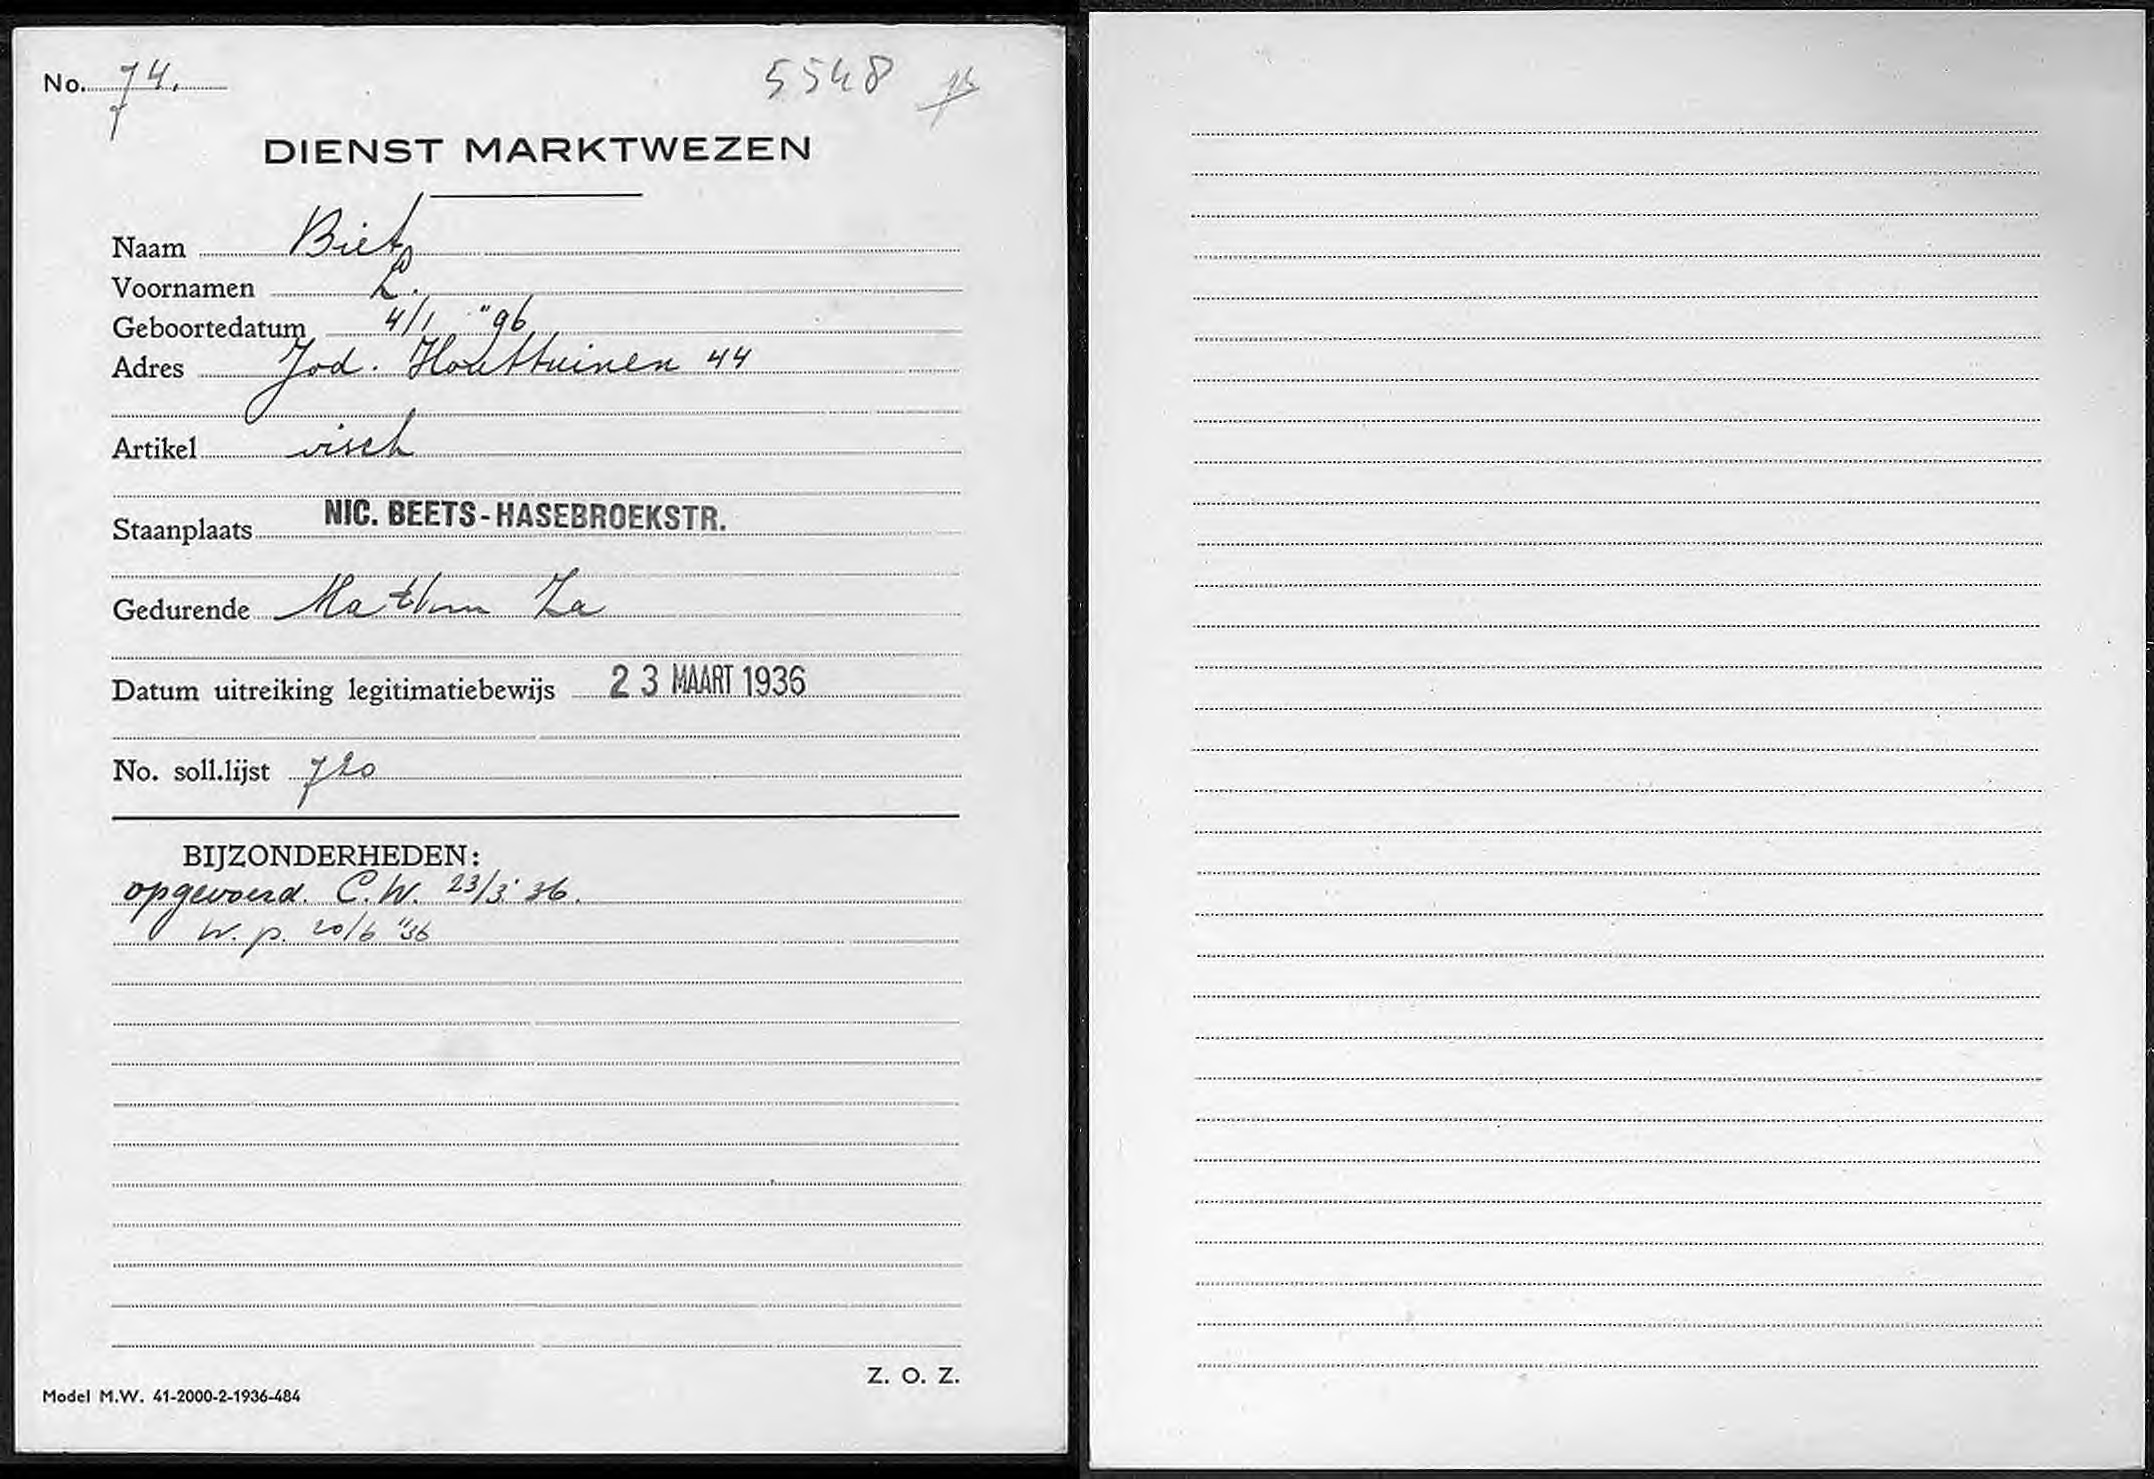 No. 74.
5548
DIENST MARKTWEZEN
Naam Biet
Voornamen L.
Geboortedatum 4/1 "96
Adres Jod. Houttuinen 44
Artikel visch
Staanplaats NIC. BEETS-HASEBROEKSTR.
Gedurende Ma t/m Za
Datum uitreiking legitimatiebewijs 23 MAART 1936
No. soll.lijst 720
BIJZONDERHEDEN:
opgevoerd. C.W. 23/3 '36.
W. p. 20/6 "36
Z. O. Z.
Model M.W. 41-2000-2-1936-484